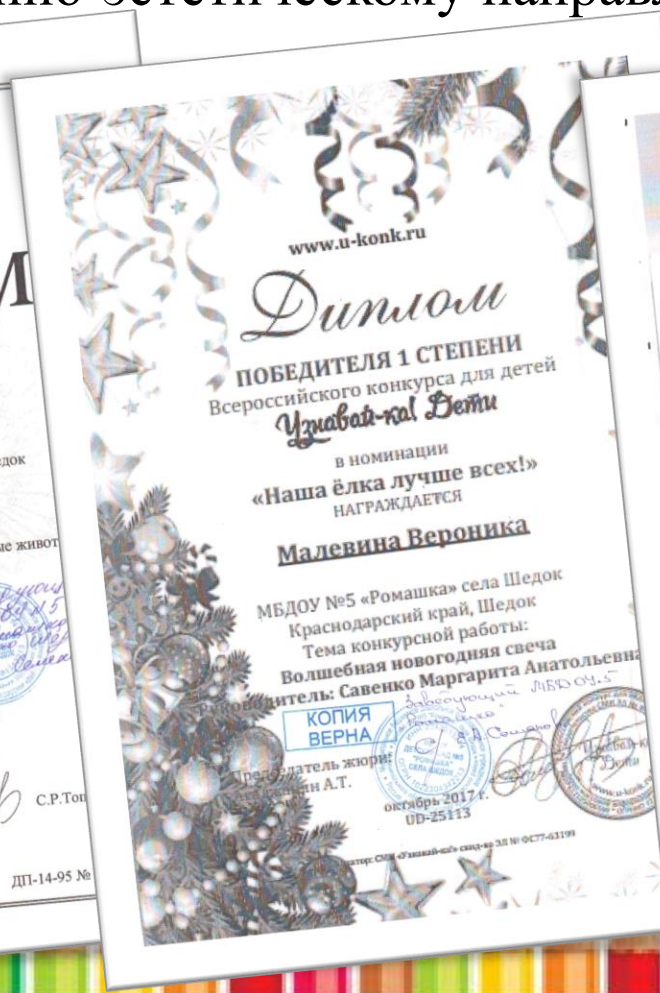 эстетическому
www.u-konk.ru
Диплом
ПОБЕДИТЕЛЯ 1 СТЕПЕНИ
Всероссийского конкурса для детей
Узнавай-ка! Дети
в номинации
«Наша ёлка лучше всех!»
НАГРАЖДАЕТСЯ
Малевина Вероника
МБДОУ №5 «Ромашка» села Шедок
Краснодарский край, Шедок
Тема конкурсной работы:
Волшебная новогодняя свеча
Савенко Маргарита Анатольевна
КОПИЯ
ВЕРНА
Заведующий МБДОУ
жюри:
А.Т.
октябрь 2017 г.
UD-25113
СМИ «Узнавай-ка!» свид-во ЭЛ № ФС77-63199
С.Р.
ДП-14-95 №